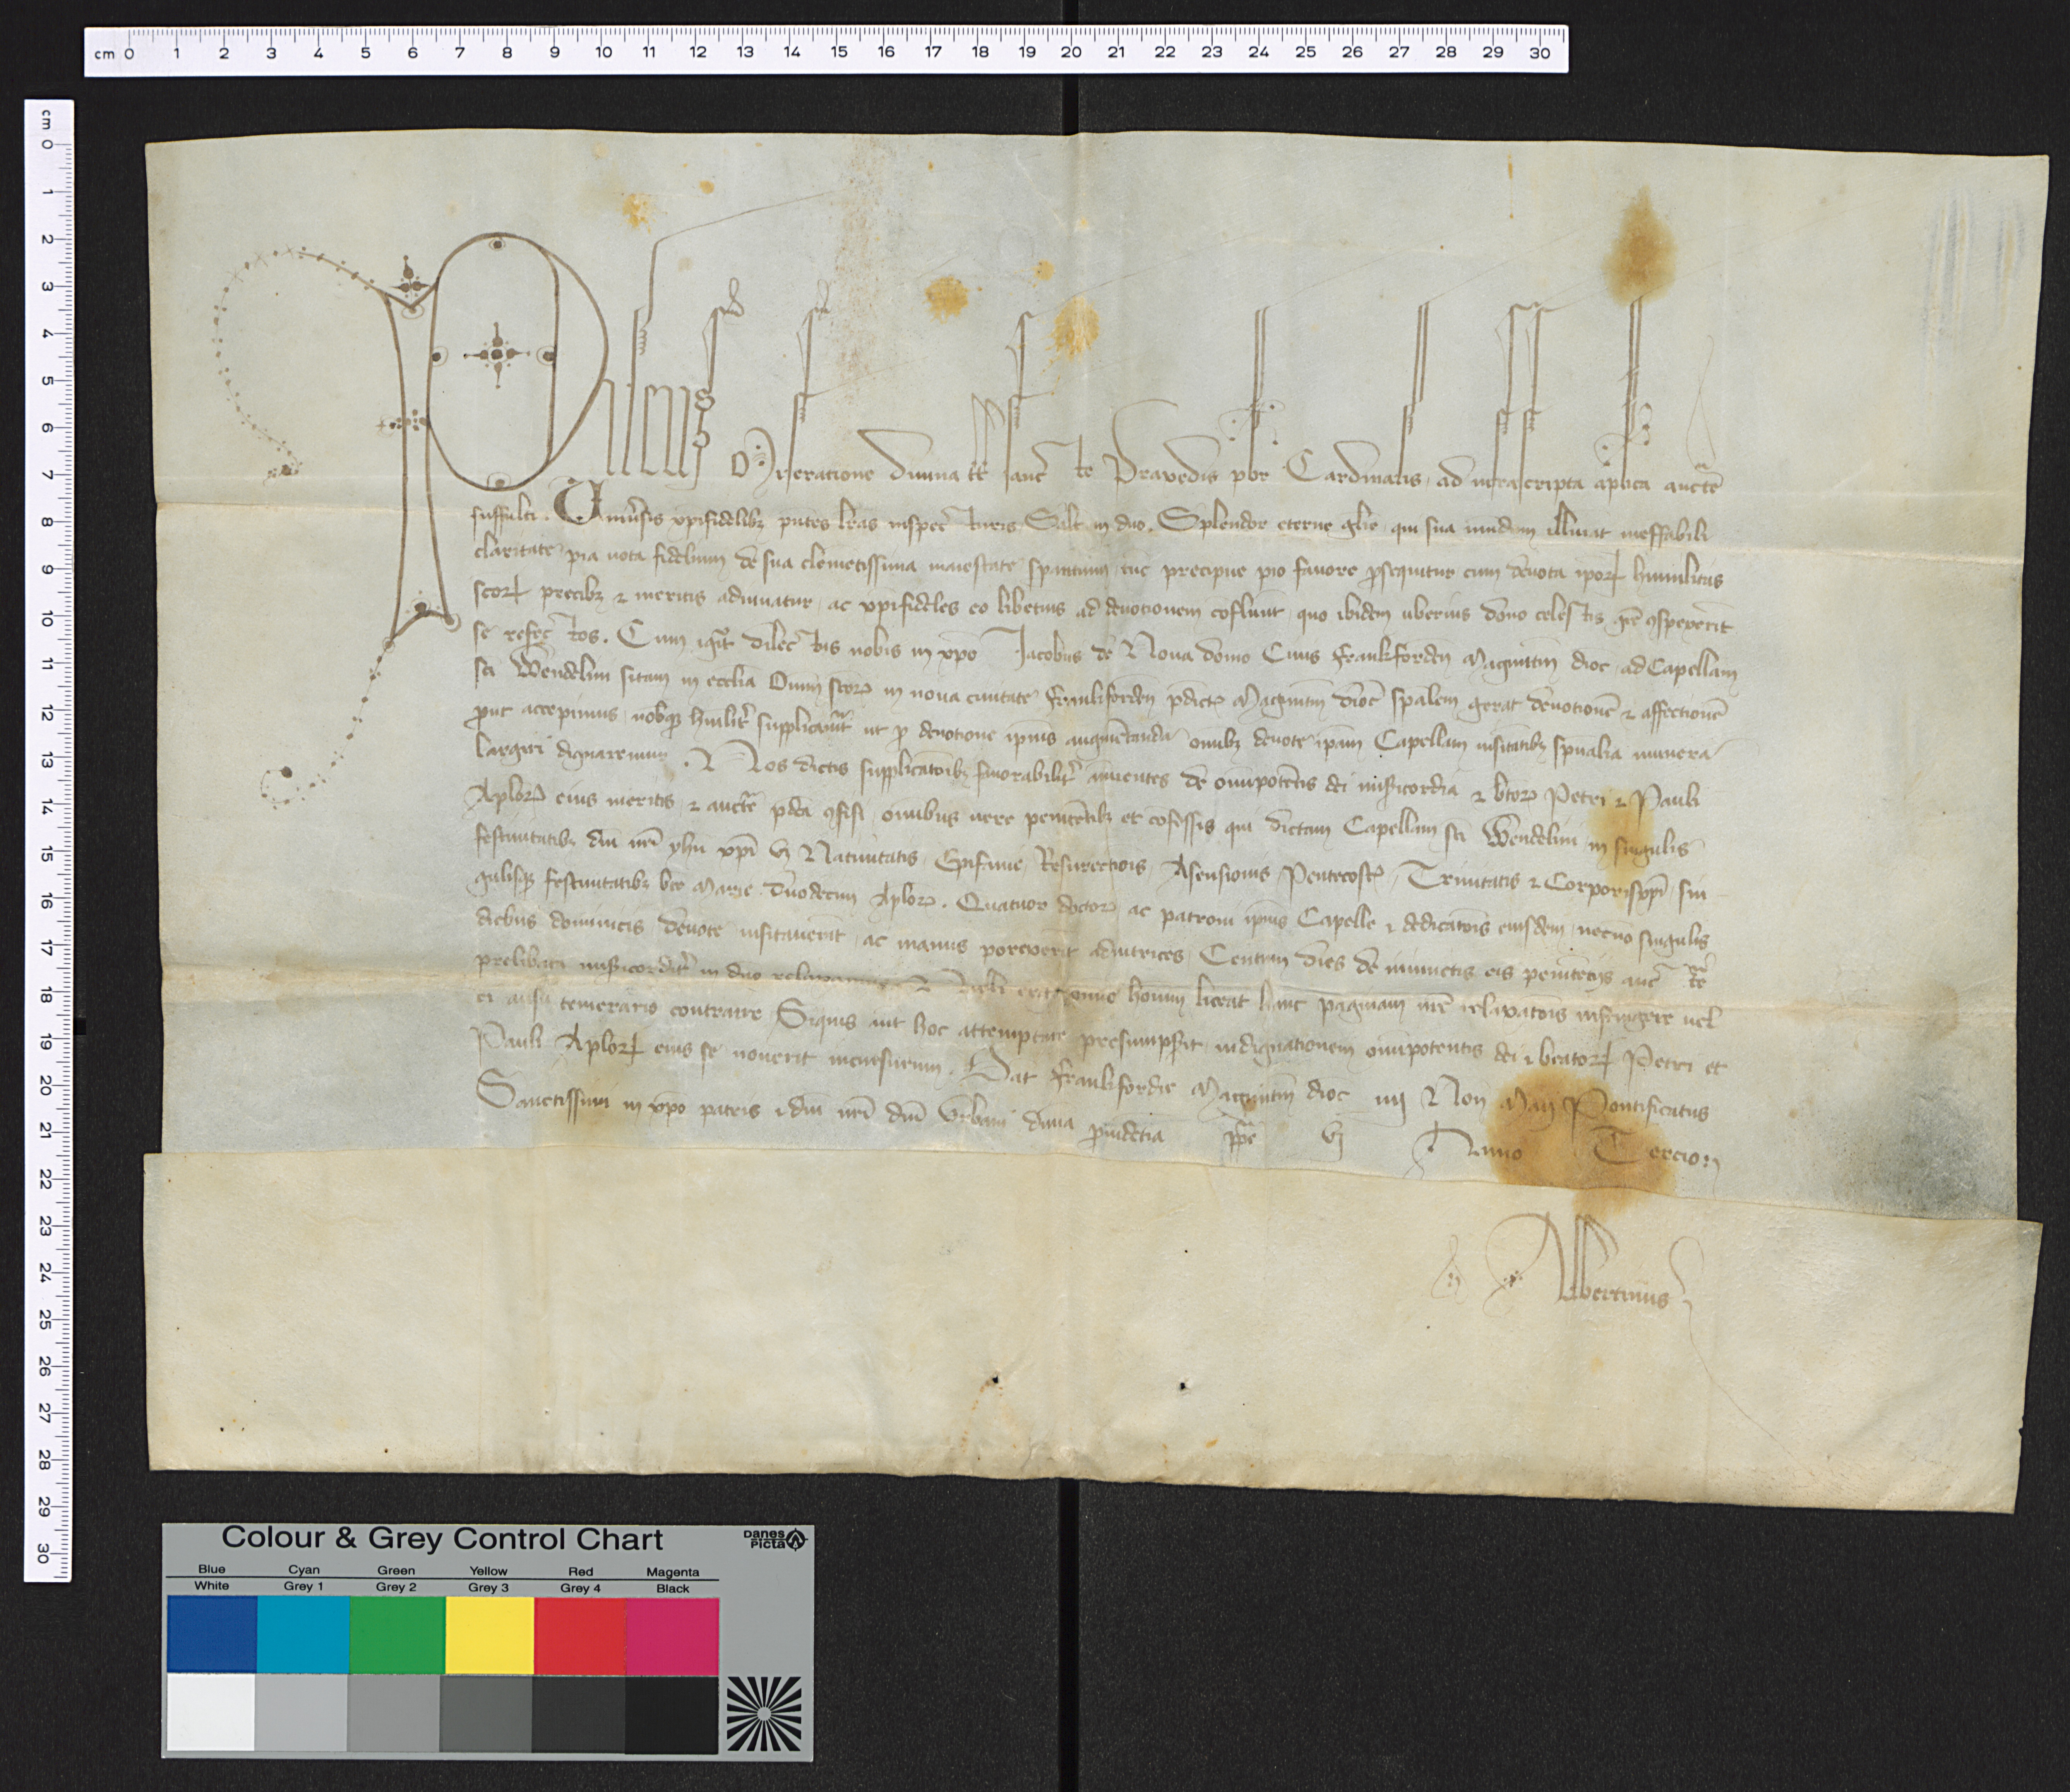 cm 0 1 2 3 4 5 6 7 8 9 10 11 12 13 14 15 16 17 18 19 20 21 22 23 24 25 26 27 28 29 30
cm 0 1 2 3 4 5 6 7 8 9 10 11 12 13 14 15 16 17 18 19 20 21 22 23 24 25 26 27 28 29 30
Pileus Miseratione divina tt sancte Praxedis pbr Cardinalis ad infrascripta aplica aucte
suffulti. Universis xpifidelibz pntes lras inspecturis Salt in dno. Splendor eterne glie qui sua mundum illuiat ineffabili
claritate pia vota fidelium de sua clemetissima maiestate sperantium tuc precipue pio favore psequitur cum devota ipor humilitas
scor precibz et meritis adiuvatur ac xpifideles eo libetius ad devotionem cofluut quo ibidem uberius dono celestis gre conspexerit
se refectos. Cum igitr dilectus nobis in xpo Jacobus de Nova domo Civis Frankforden Maguntin dioc ad Capellam
sci Wendelini sitam in ecclia Oium scor in nova civitate Frankforden pdict Maguntin dioc spalem gerat devotione et affectione
prout accepimus nobisqz humilitr supplicavit ut p devotione ipius augmetanda omibz devote ipam Capellam visitatibz spualia munera
largiri dignaremur. Nos dictis supplicatoibz favorabilitr anuentes de omipotetis dei misericordia et btor Petri et Pauli
Aplor eius meritis et aucte pdca cofisi omibus vere penitetibz et cofessis qui dictam Capellam sci Wendelini in singulis
festivitatibz dni nri yhu xpi vz Nativitatis Epifanie Resurectiois Asensionis Pentecost Trinitatis et Corporis xpi sin
gulisqz festivitatibz bte Marie duodecim Aplor. Quatuor doctor ac patroni ipius Capelle et dedicatois eiusdem necno singulis
diebus dominicis devote visitaverit ac manus porexerit adiutrices Centum dies de iniuctis eis penitecijs aucte nra
prelibata misericorditr in dno relaxamus Nulli ergo omio homin liceat hanc paginam nre relaxatois infringere vel
ei ausu temerario contraire Siquis aut hoc attemptare presumpserit indignationem omipotentis dei et beator Petri et
Pauli Aplor eius se noverit incursurum. Dat Frankfordie Maguntin dioc iiij Non Maij Pontificatus
Sanctissimi in xpo patris et dni nri dni Urbani diva pvidetia ppe vj Anno Tercio
Albertinus
Colour & Grey Control Chart
DANES PICTA
Blue Cyan Green Yellow Red Magenta
White Grey 1 Grey 2 Grey 3 Grey 4 Black